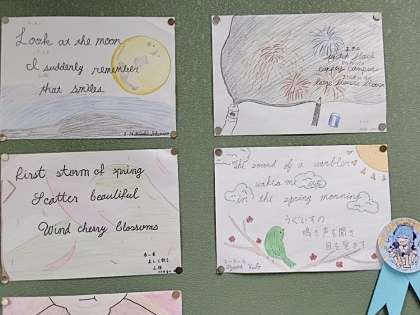 Look at the moon
I suddenly remember
that smiles.
pitch black
empty canvas
large flowers bloom
First storm of spring
Scatter beautiful
Wind cherry blossoms
The sound of a warbler
wakes me
in the spring morning
うぐいすの
鳴き声を聞き
目を覚ます